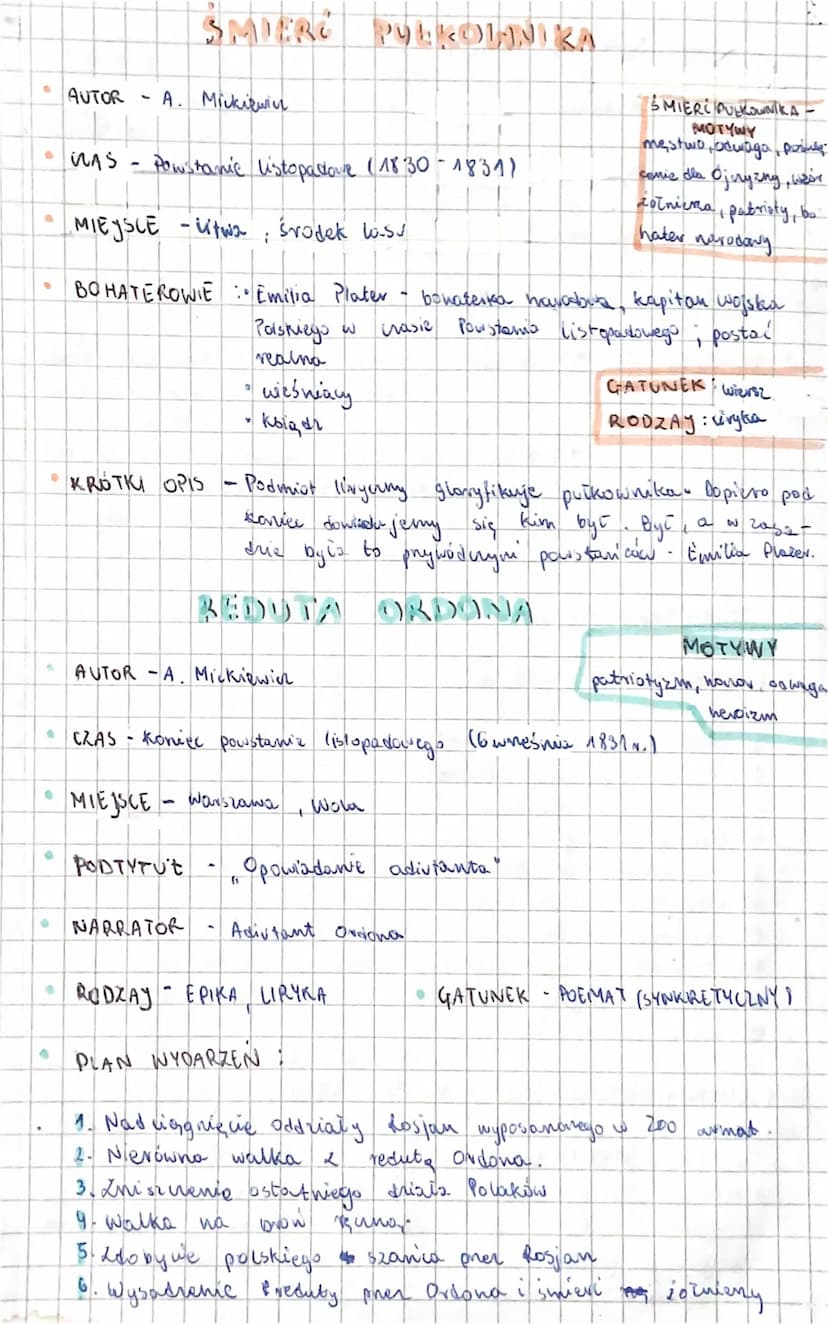 ŚMIERĆ PUŁKOWNIKA
AUTOR - A. Mickiewicz
CZAS - Powstanie Listopadowe (1830 - 1831)
MIEJSCE - Litwa, środek lasu
ŚMIERĆ PUŁKOWNIKA -
MOTYWY
męstwo, odwaga, poświę-
cenie dla Ojczyzny, wzór
żołnierza, patrioty, bo
hater narodowy
BOHATEROWIE : • Emilia Plater - bohaterka narodowa, kapitan wojska
Polskiego w czasie Powstania Listopadowego; postać
realna
• wieśniacy
• Ksiądz
GATUNEK : wiersz
RODZAJ : liryka
KRÓTKI OPIS - Podmiot liryczny gloryfikuje pułkownika. Dopiero pod
koniec dowiadujemy się kim był. Był, a w zasa-
dzie była to przywódczyni powstańców - Emilia Plater.
REDUTA ORDONA
MOTYWY
patriotyzm, honor, odwaga
heroizm
AUTOR - A. Mickiewicz
CZAS - koniec powstania listopadowego (6 września 1831 r.)
MIEJSCE - Warszawa, Wola
PODTYTUŁ - „Opowiadanie adiutanta"
NARRATOR - Adiutant Ordona
RODZAJ - EPIKA, LIRYKA
GATUNEK - POEMAT (SYNKRETYCZNY)
PLAN WYDARZEŃ :
1. Nadciągnięcie oddziały Rosjan wyposażonego w 200 armat.
2. Nierówna walka z redutą Ordona.
3. Zniszczenie ostatniego działa Polaków
4. Walka na broń
5. Zdobycie polskiego szańca przez Rosjan
6. Wysadzenie reduty przez Ordona i śmierć żołnierzy